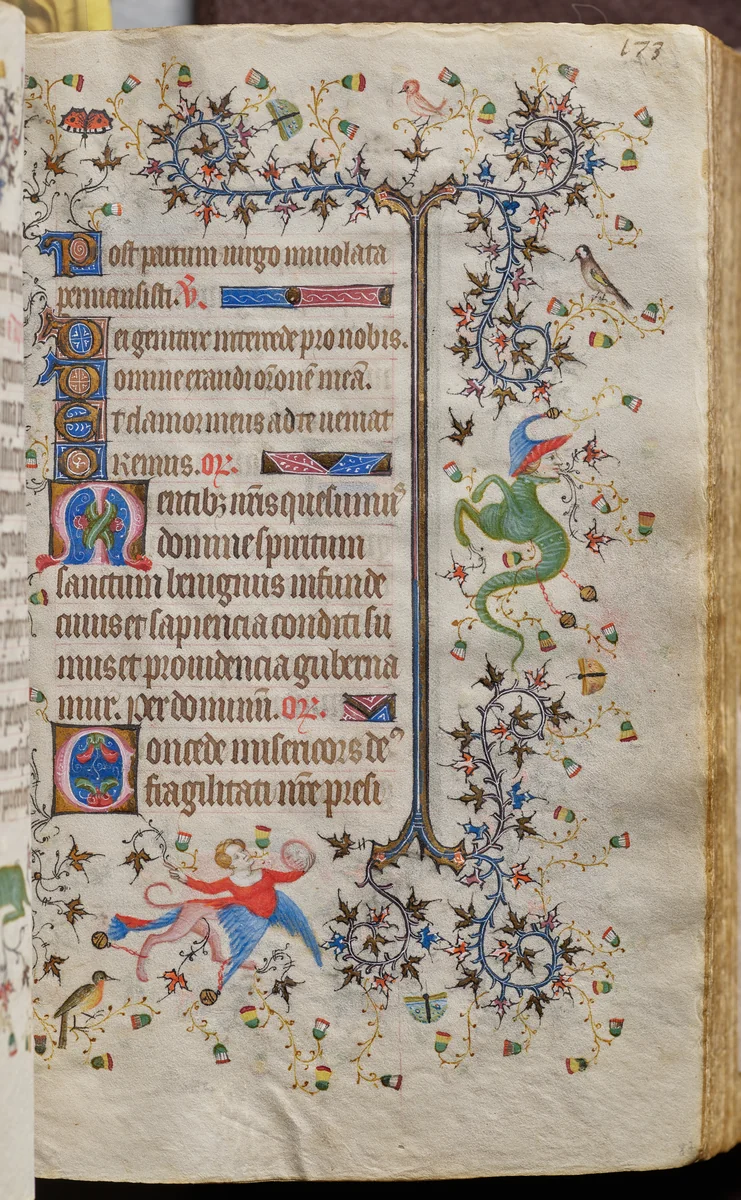 173
Post partum uirgo inuiolata
permansisti. V̄.
Dei genitrix intercede pro nobis.
Domine exaudi or̄onē meā.
Et clamor meus ad te ueniat
Oremus. or̄.
Mentibꝫ nr̄is quesumus
domine spiritum
sanctum benignus infunde
cuius et sapiencia conditi su
mus et prouidencia guberna
mur. per dominū. or̄.
Concede misericors deꝰ
fragilitati nr̄e presi